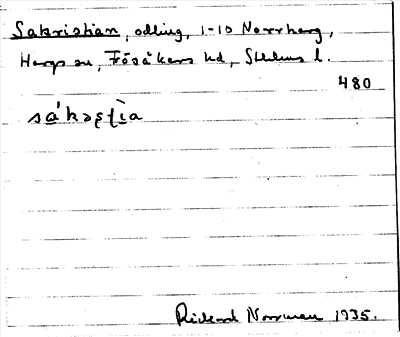 Sakristian, odling, 1-10 Norrberg,
Harg sn, Frösåkers hd, Sthlms l.
480
sákəʂt̀ia
Rickard Norrman 1935.